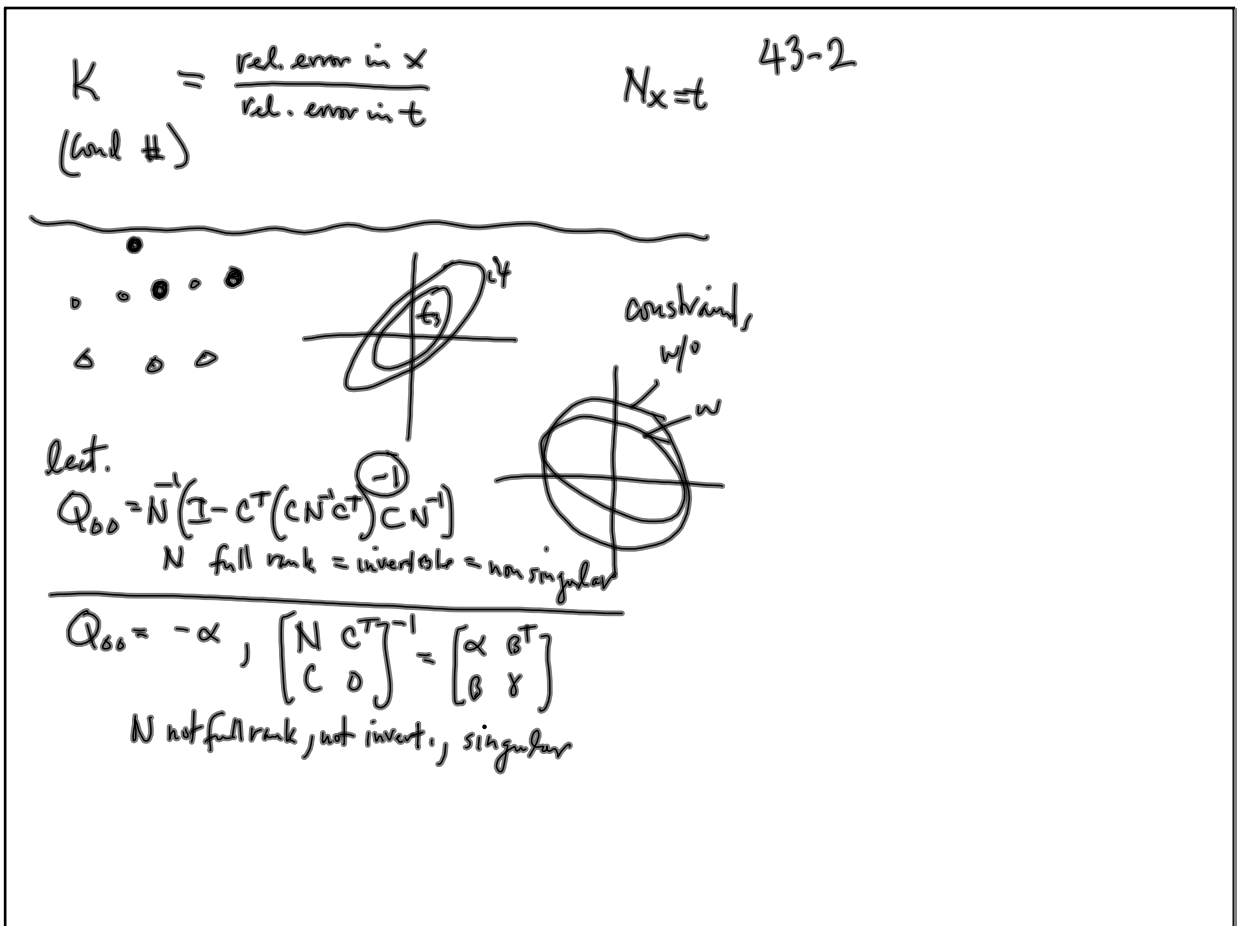 43-2
K = rel. error in x / rel. error in t
(Cond #)
Nx=t
constraint,
w/o
w
lect.
Q_ΔΔ = N⁻¹(I - Cᵀ(CN⁻¹Cᵀ)⁻¹CN⁻¹)
N full rank = invertible = nonsingular
Q_ΔΔ = -α, [N Cᵀ; C 0]⁻¹ = [α βᵀ; β γ]
N not full rank, not invert., singular